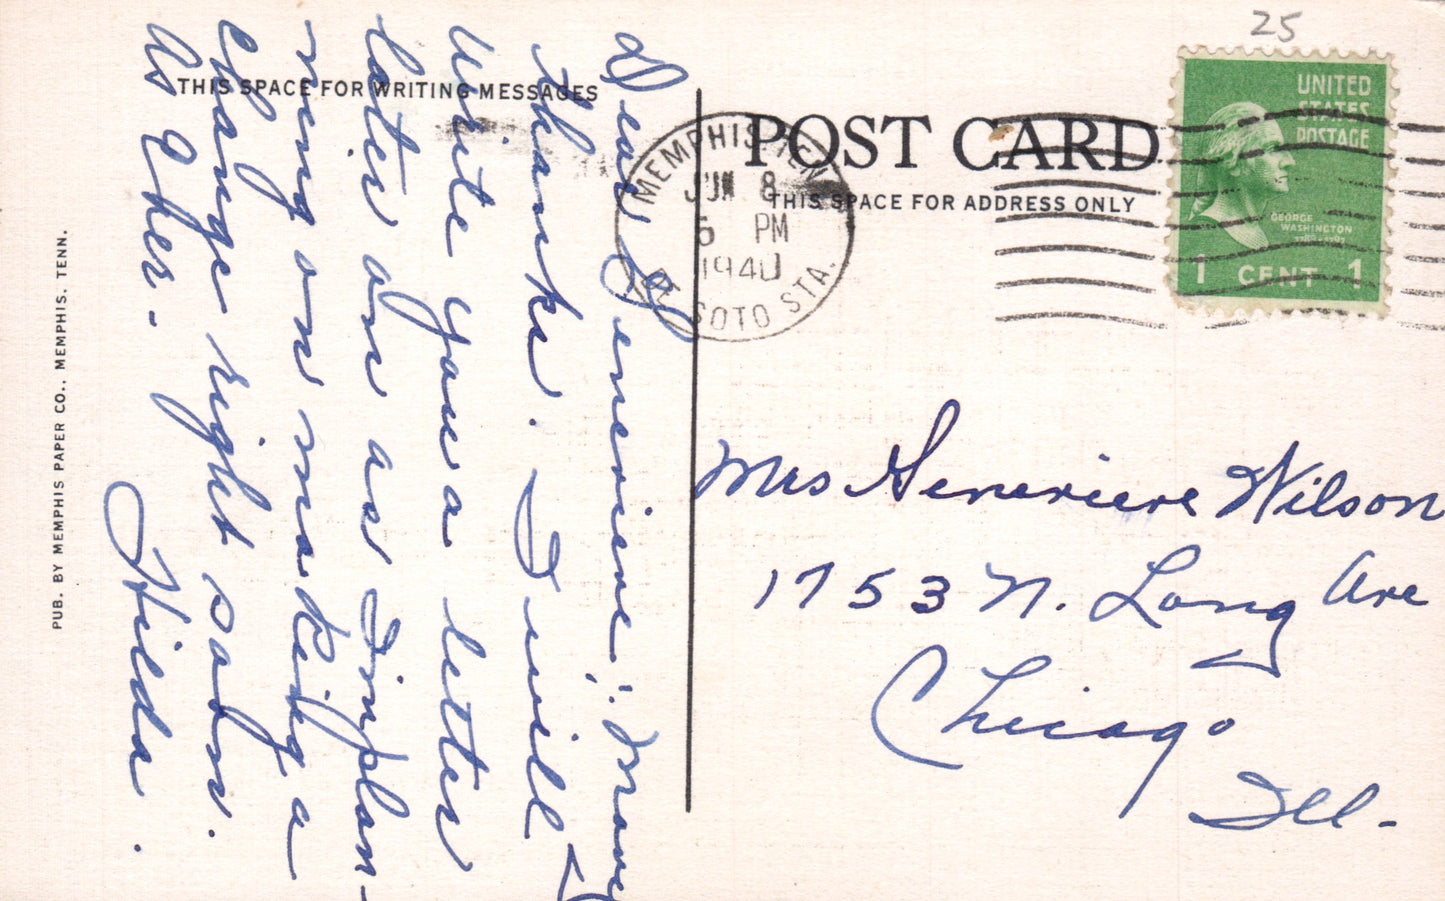 25
THIS SPACE FOR WRITING MESSAGES
POST CARD
THIS SPACE FOR ADDRESS ONLY
MEMPHIS TENN
JUN 8
5 PM
1940
DE SOTO STA.
UNITED
STATES
POSTAGE
GEORGE
WASHINGTON
1789-1797
1 CENT 1
Dear Genevieve; Many
thanks. I will
write you a letter
later on as I'm plan-
ning on making a
change right soon.
As Ever-
Hilda.
Mrs Genevieve Wilson
1753 N. Long Ave
Chicago
Ill-
PUB. BY MEMPHIS PAPER CO., MEMPHIS, TENN.